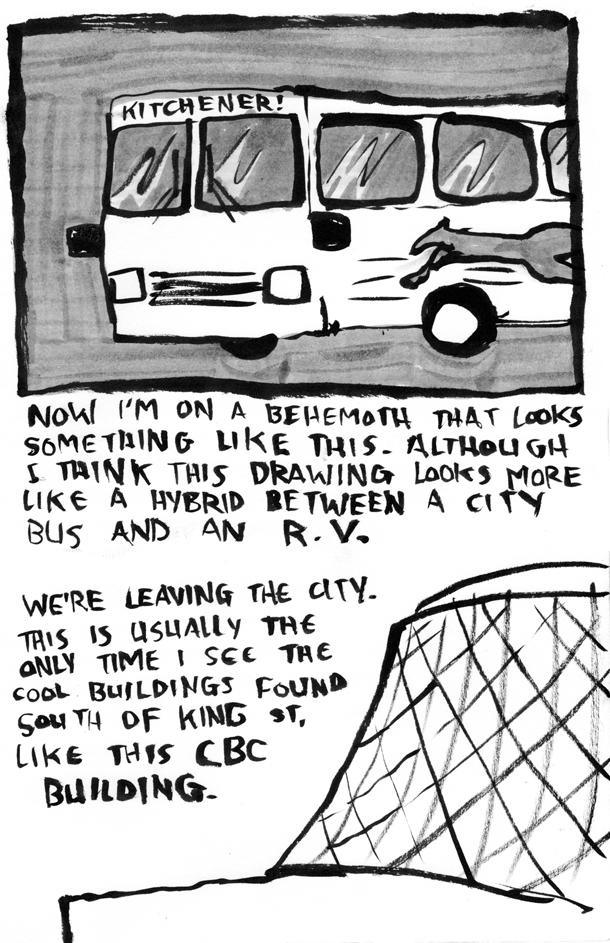 KITCHENER!
NOW I'M ON A BEHEMOTH THAT LOOKS
SOMETHING LIKE THIS. ALTHOUGH
I THINK THIS DRAWING LOOKS MORE
LIKE A HYBRID BETWEEN A CITY
BUS AND AN R.V.
WE'RE LEAVING THE CITY.
THIS IS USUALLY THE
ONLY TIME I SEE THE
COOL BUILDINGS FOUND
SOUTH OF KING ST,
LIKE THIS CBC
BUILDING.